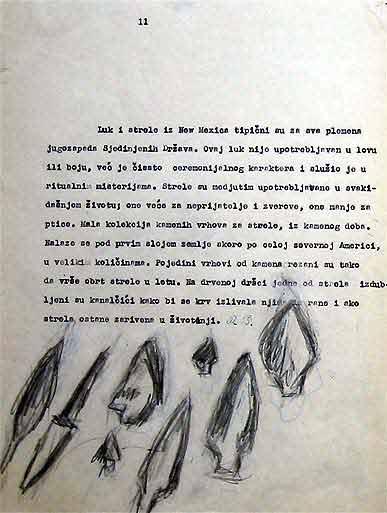 11
Luk i strele iz New Mexica tipični su za sva plemena
jugozapada Sjedinjenih Država. Ovaj luk nije upotrebljavan u lovu
ili boju, već je čisto ceremonijalnog karaktera i služio je u
ritualnim misterijama. Strele su medjutim upotrebljavane u svaki-
dašnjem životu; one veće za neprijatelje i zverove, one manje za
ptice. Mala kolekcija kamenih vrhova za strele, iz kamenog doba.
Nalaze se pod prvim slojem zemlje skoro po celoj severnoj Americi,
u velikim količinama. Pojedini vrhovi od kamena rezani su tako
da vrše obrt strele u letu. Na drvenoj dršci jedne od strela izdub-
ljeni su kanalčići kako bi se krv izlivala iz rane i ako
strela ostane zarivena u životinji.